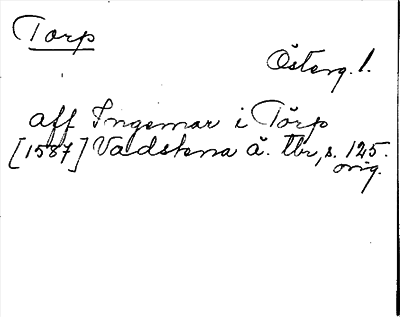 Torp
Österg. l.
aff Ingemar i Törp
[1587] Vadstena ä. tbr, s. 125.
orig.